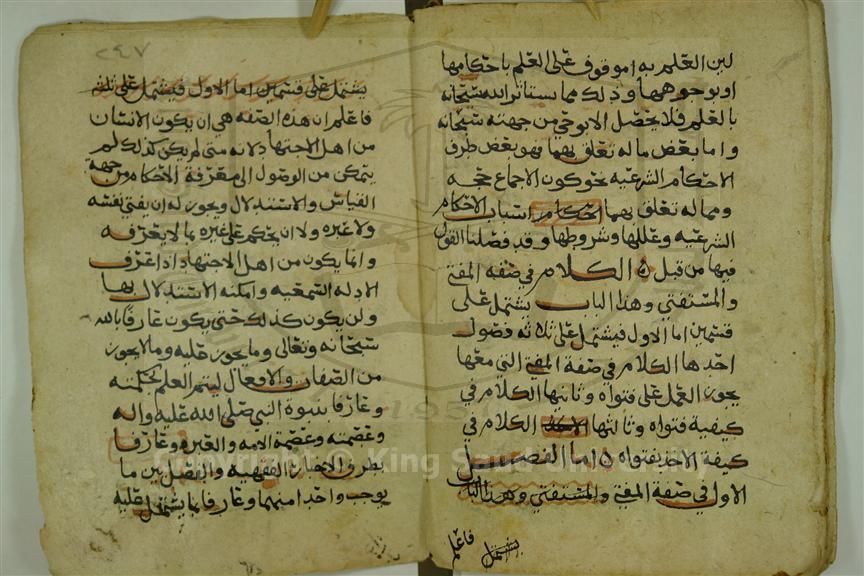 لين العلم به اموقوف على العلم باحكامها
اوبوجوهها وذلك مما يستاثر الله سبحانه
بالعلم فلا يحصل الا بوحي من جهته سبحانه
واما بعض ماله تعلق بهما فهو بعض طرف
الاحكام الشرعيه نحو كون الاجماع حجه
ومما له تعلق بهما احكام اسباب الاحكام
الشرعيه وعللها وشروطها وقد فصلنا القول
فيها من قبل ن الكلام في صفه المفتي
والمستفتي وهذا الباب يشتمل على
قسمين اما الاول فيشتمل على ثلاثه فصول
احدها الكلام في صفة المفتي التي معها
يجوز العمل على فتواه وثانيها الكلام في
كيفية فتواه وثالثها الكلام في
كيفة الاخذ بفتواه ن اما الفصل
الاول في صفة المفتي والمستفتي وهذا الباب
يشتمل فاعلم
٢٤٧
يشتمل على قسمين اما الاول فيشتمل على ثلثه
فاعلم ان هذه الصفه هي ان يكون الانسان
من اهل الاجتهاد لانه متى لم يكن كذلك لم
يتمكن من الوصول الى معرفة الاحكام من جهة
القياس والاستدلال ويجوز له ان يفتي نفسه
ولا غيره ولا ان يحكم على غيره بما لا يعرفه
وانما يكون من اهل الاجتهاد اذا عرف
الادله السمعيه وامكنه الاستدلال بها
ولن يكون كذلك حتى يكون عارفا بالله
سبحانه وتعالى وما يجوز عليه وما لا يجوز
من الصفات والافعال ليتم العلم بحكمته
وعارفا بنبوة النبي صلى الله عليه واله
وعصمته وعصمة الامه والعتره وعارفا
بطرف الاخبار الفقهيه والفصل بين ما
يوجب واحدا منهما وعارفا بما يشتمل عليه
Copyright © King Saud University
1957